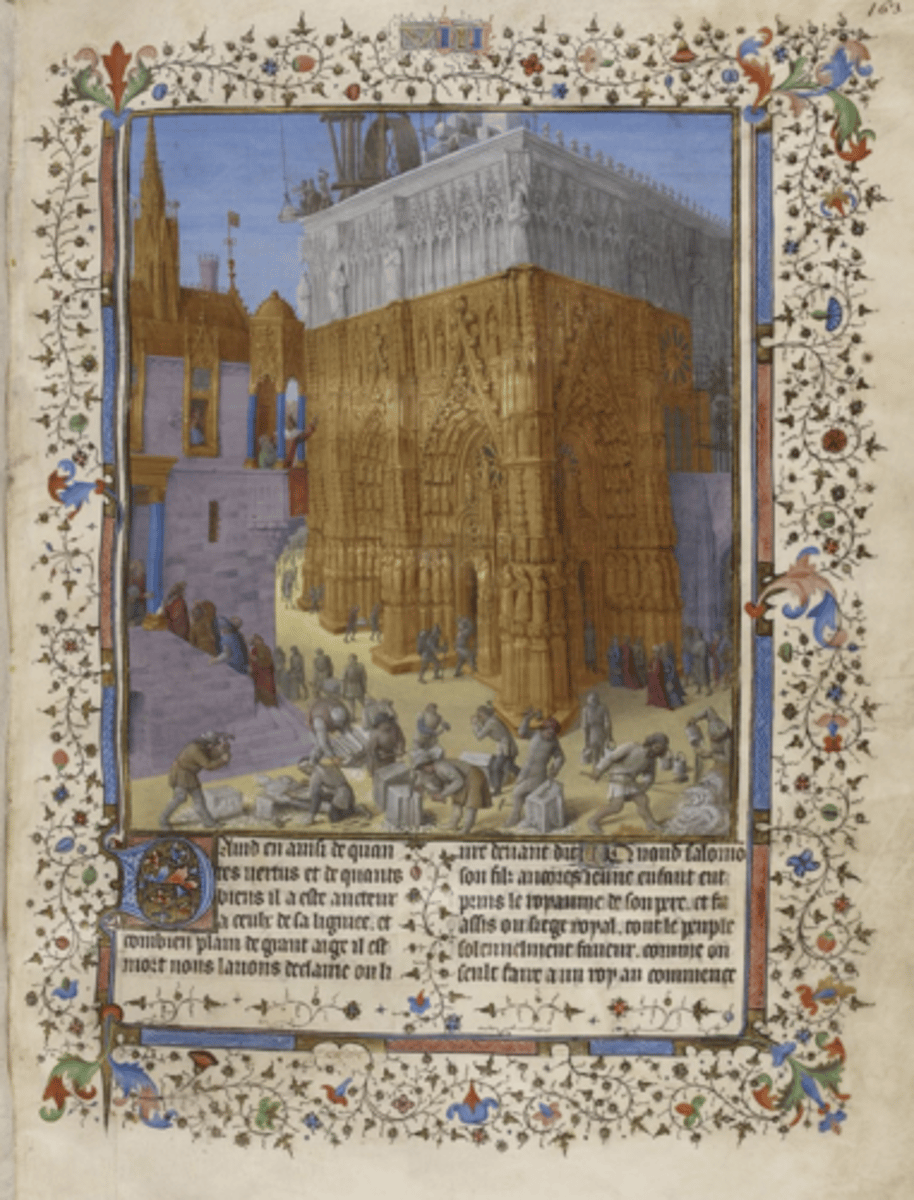 163
VIII
David en ainsi de quan
tes vertus et de quants
biens il a este aucteur
a ceulx de sa lignee. et
combien plain de grant aige il est
mort nous lavons declaire ou li
ure deuant dit Quand salomo
son filz ancores ieune enfant eut
prins le royaume de son pere. et fu
assis ou siege royal. tout le peuple
solennelment faueur. comme on
seult faire a un roy au commence